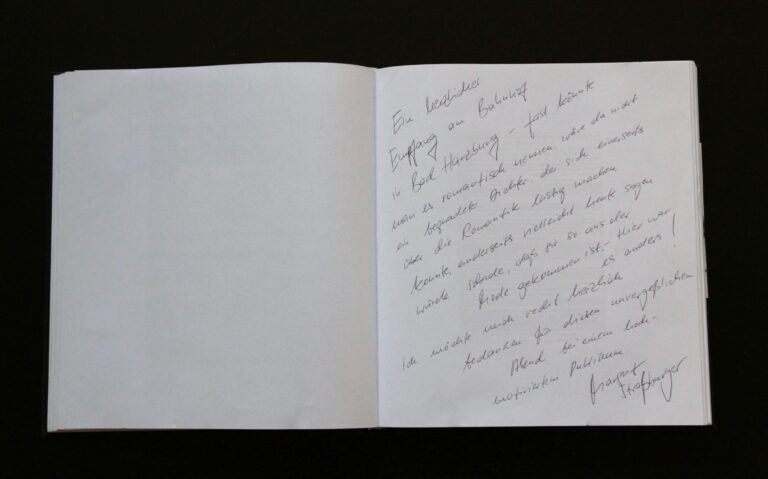 Ein herzlicher
Empfang am Bahnhof
in Bad Harzburg – fast könnte
man es romantisch nennen, wäre da nicht
ein begnadeter Dichter, der sich einerseits
über die Romantik lustig machen
konnte, anderseits vielleicht heute sagen
würde schade, daß sie so aus der
Mode gekommen ist. – Hier war
es anders!
Ich möchte mich recht herzlich
bedanken für diesen unvergeßlichen
Abend bei einem hoch-
motivierten Publikum
Margrit
Straßburger